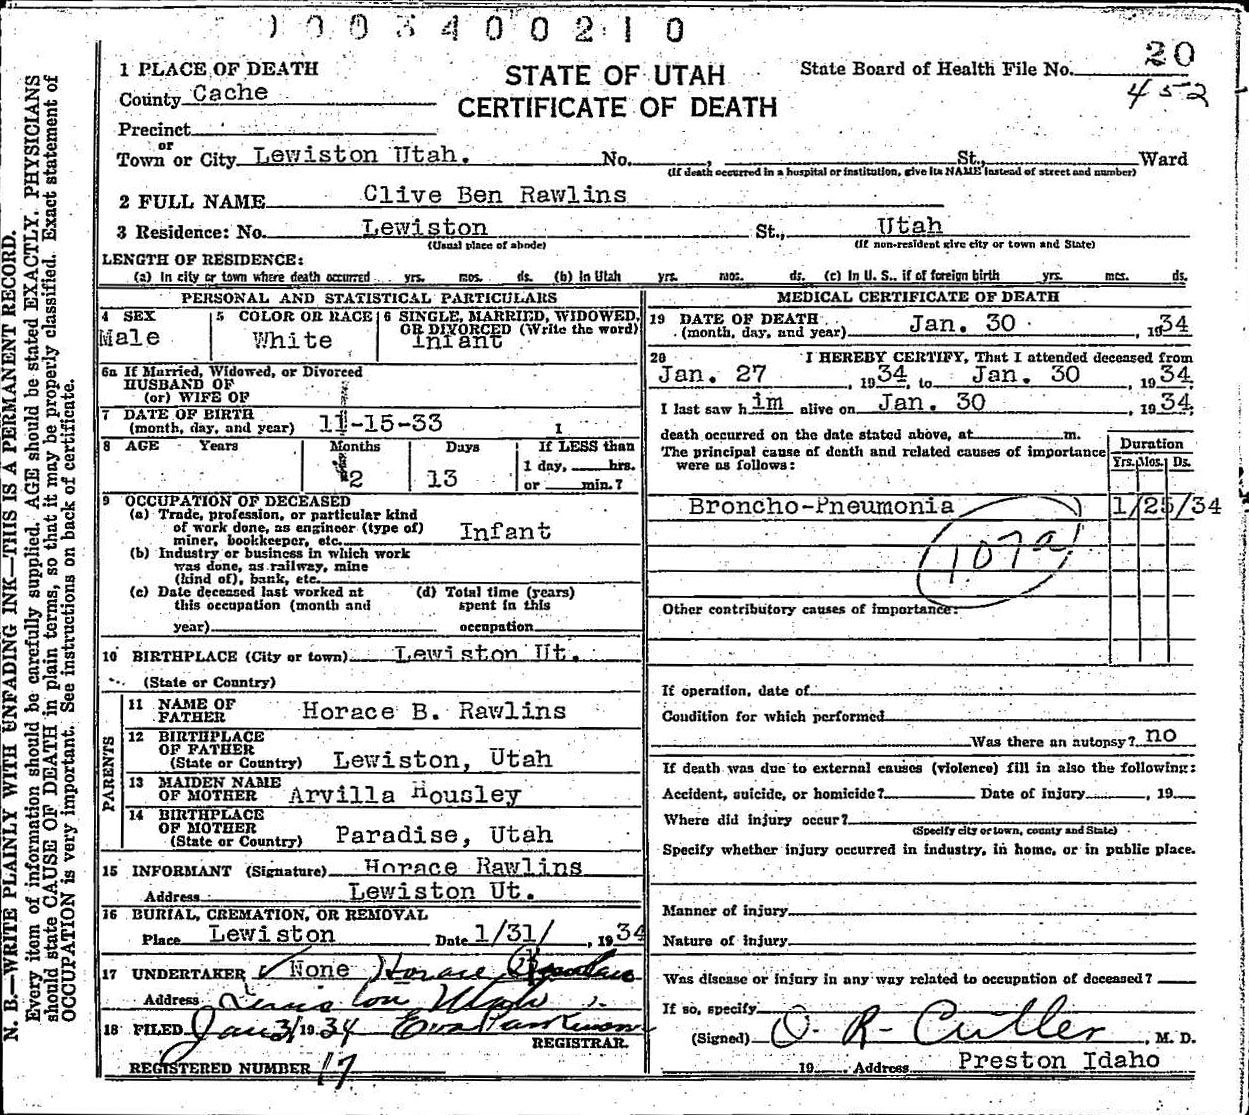 1003400210
1 PLACE OF DEATH
STATE OF UTAH
CERTIFICATE OF DEATH
State Board of Health File No. 20
452
County Cache
Precinct
or
Town or City Lewiston Utah. No. , St., Ward
(If death occurred in a hospital or institution, give its NAME instead of street and number)
2 FULL NAME Clive Ben Rawlins
3 Residence: No. Lewiston St., Utah
(Usual place of abode) (If non-resident give city or town and State)
LENGTH OF RESIDENCE:
(a) In city or town where death occurred yrs. mos. ds. (b) In Utah yrs. mos. ds. (c) In U. S., if of foreign birth yrs. mos. ds.
PERSONAL AND STATISTICAL PARTICULARS
4 SEX
Male
5 COLOR OR RACE
White
6 SINGLE, MARRIED, WIDOWED,
OR DIVORCED (Write the word)
Infant
6a If Married, Widowed, or Divorced
HUSBAND OF
(or) WIFE OF
7 DATE OF BIRTH
(month, day, and year) 11-15-33 1
8 AGE Years Months Days If LESS than
2 13 1 day, hrs.
or min.?
9 OCCUPATION OF DECEASED
(a) Trade, profession, or particular kind
of work done, as engineer (type of)
miner, bookkeeper, etc. Infant
(b) Industry or business in which work
was done, as railway, mine
(kind of), bank, etc.
(c) Date deceased last worked at
this occupation (month and
year)
(d) Total time (years)
spent in this
occupation
10 BIRTHPLACE (City or town) Lewiston Ut.
(State or Country)
PARENTS
11 NAME OF
FATHER Horace B. Rawlins
12 BIRTHPLACE
OF FATHER
(State or Country) Lewiston, Utah
13 MAIDEN NAME
OF MOTHER Arvilla Housley
14 BIRTHPLACE
OF MOTHER
(State or Country) Paradise, Utah
15 INFORMANT (Signature) Horace Rawlins
Address Lewiston Ut.
16 BURIAL, CREMATION, OR REMOVAL
Place Lewiston Date 1/31/ , 1934
17 UNDERTAKER None Horace Rawlins
Address Lewiston Utah
18 FILED Jan 31 1934 Eva Parkinson
REGISTRAR.
REGISTERED NUMBER 17
MEDICAL CERTIFICATE OF DEATH
19 DATE OF DEATH
(month, day, and year) Jan. 30 , 1934
20 I HEREBY CERTIFY, That I attended deceased from
Jan. 27 , 1934, to Jan. 30 , 1934,
I last saw him alive on Jan. 30 , 1934;
death occurred on the date stated above, at m.
The principal cause of death and related causes of importance
were as follows:
Duration
Yrs. Mos. Ds.
Broncho-Pneumonia 1/25/34
107a
Other contributory causes of importance:
If operation, date of
Condition for which performed
Was there an autopsy? no
If death was due to external causes (violence) fill in also the following:
Accident, suicide, or homicide? Date of injury , 19
Where did injury occur?
(Specify city or town, county and State)
Specify whether injury occurred in industry, in home, or in public place.
Manner of injury
Nature of injury
Was disease or injury in any way related to occupation of deceased?
If so, specify
(Signed) O. R. Cutler , M. D.
19 Address Preston Idaho
N. B.—WRITE PLAINLY WITH UNFADING INK—THIS IS A PERMANENT RECORD.
Every item of information should be carefully supplied. AGE should be stated EXACTLY. PHYSICIANS
should state CAUSE OF DEATH in plain terms, so that it may be properly classified. Exact statement of
OCCUPATION is very important. See instructions on back of certificate.